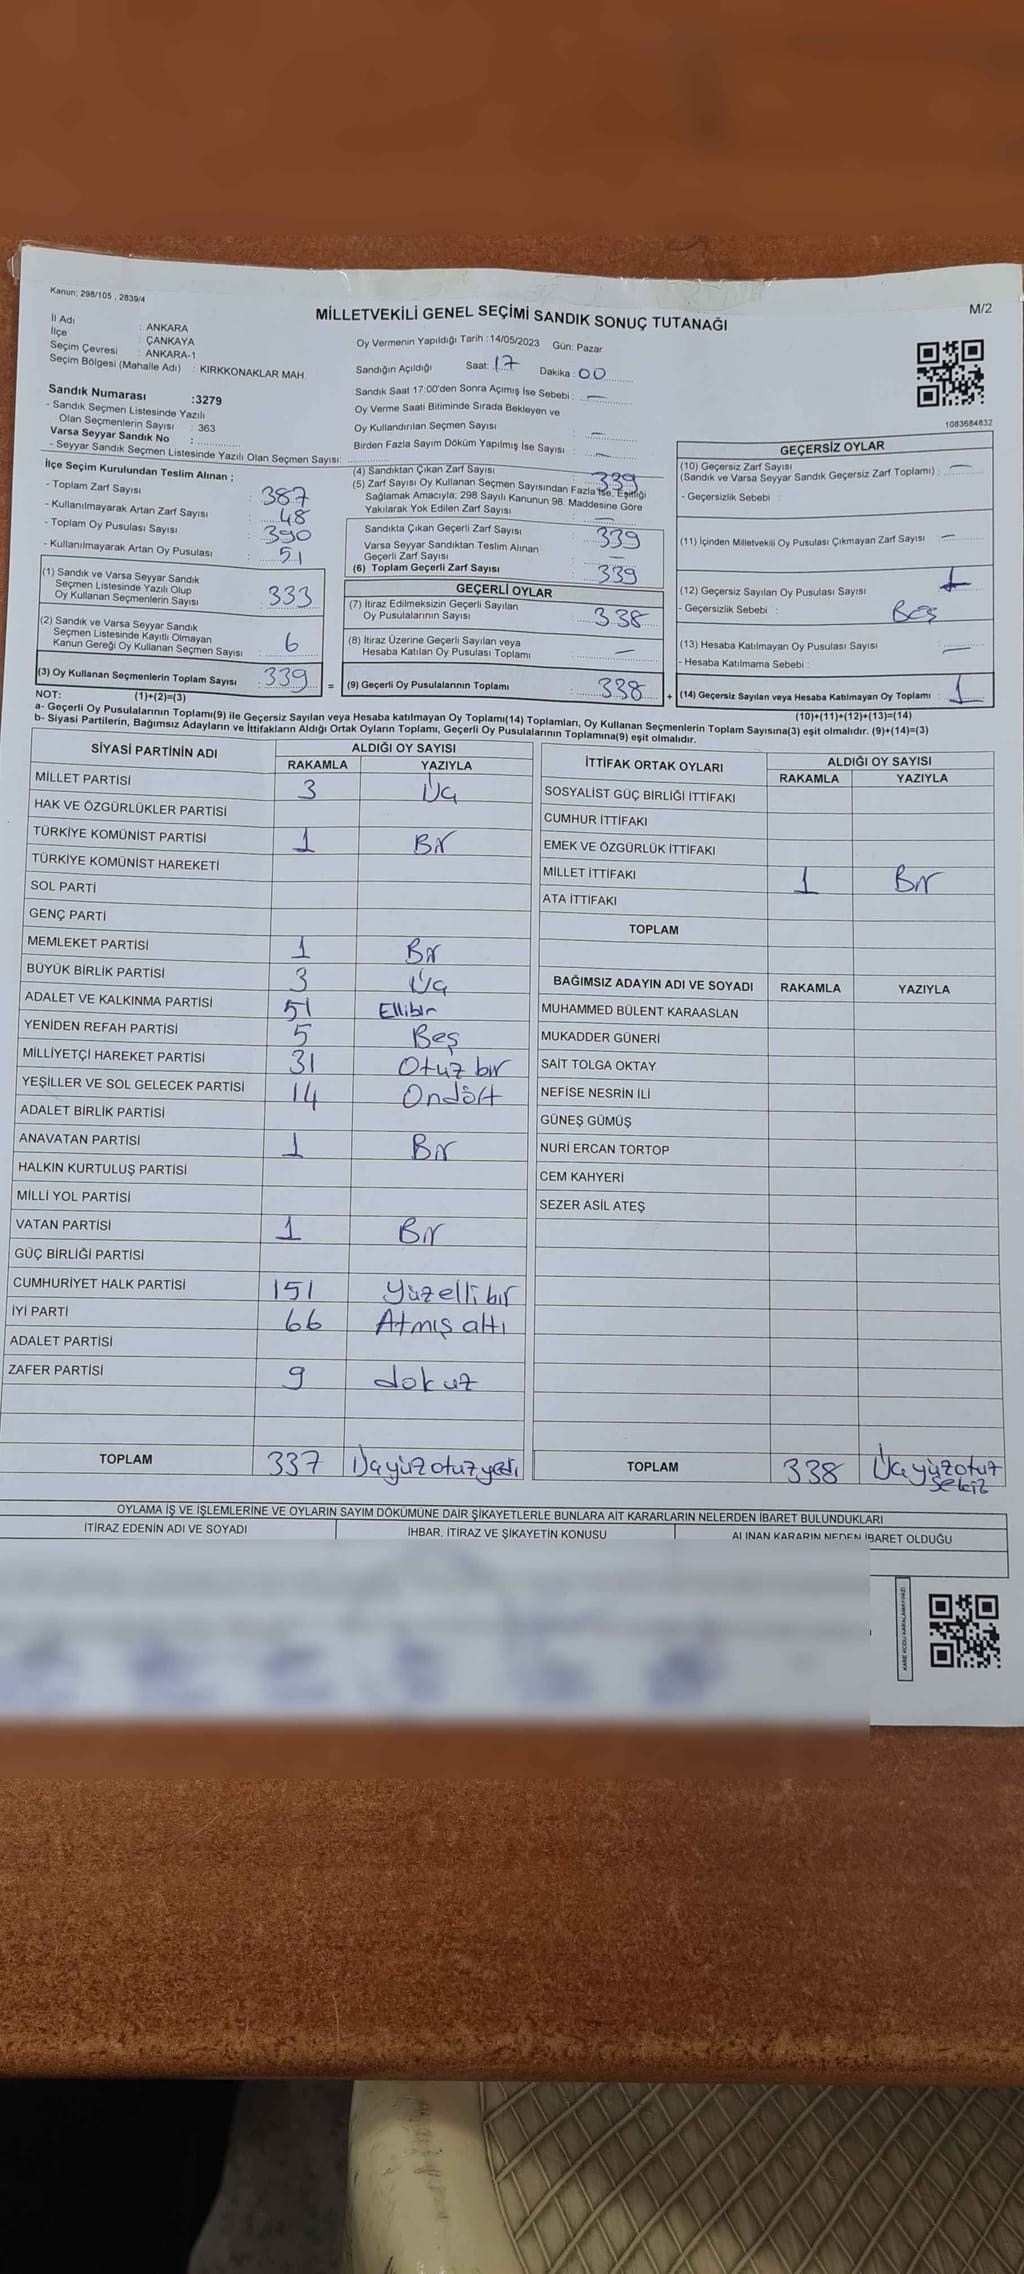 Kanun; 298/105 , 2839/4
MİLLETVEKİLİ GENEL SEÇİMİ SANDIK SONUÇ TUTANAĞI
M/2
İl Adı : ANKARA
İlçe : ÇANKAYA
Seçim Çevresi : ANKARA-1
Seçim Bölgesi (Mahalle Adı) : KIRKKONAKLAR MAH.
Sandık Numarası :3279
- Sandık Seçmen Listesinde Yazılı
Olan Seçmenlerin Sayısı : 363
Varsa Seyyar Sandık No :
- Seyyar Sandık Seçmen Listesinde Yazılı Olan Seçmen Sayısı:
Oy Vermenin Yapıldığı Tarih :14/05/2023 Gün: Pazar
Sandığın Açıldığı Saat: 17 Dakika: 00
Sandık Saat 17:00'den Sonra Açımış İse Sebebi : —
Oy Verme Saati Bitiminde Sırada Bekleyen ve
Oy Kullandırılan Seçmen Sayısı : —
Birden Fazla Sayım Döküm Yapılmış İse Sayısı : —
1083684832
İlçe Seçim Kurulundan Teslim Alınan ;
- Toplam Zarf Sayısı : 387
- Kullanılmayarak Artan Zarf Sayısı : 48
- Toplam Oy Pusulası Sayısı : 390
- Kullanılmayarak Artan Oy Pusulası : 51
(1) Sandık ve Varsa Seyyar Sandık
Seçmen Listesinde Yazılı Olup
Oy Kullanan Seçmenlerin Sayısı : 333
(2) Sandık ve Varsa Seyyar Sandık
Seçmen Listesinde Kayıtlı Olmayan
Kanun Gereği Oy Kullanan Seçmen Sayısı : 6
(3) Oy Kullanan Seçmenlerin Toplam Sayısı : 339
(1)+(2)=(3)
(4) Sandıktan Çıkan Zarf Sayısı : 339
(5) Zarf Sayısı Oy Kullanan Seçmen Sayısından Fazla İse, Eşitliği
Sağlamak Amacıyla; 298 Sayılı Kanunun 98. Maddesine Göre
Yakılarak Yok Edilen Zarf Sayısı : —
Sandıkta Çıkan Geçerli Zarf Sayısı : 339
Varsa Seyyar Sandıktan Teslim Alınan
Geçerli Zarf Sayısı : —
(6) Toplam Geçerli Zarf Sayısı : 339
GEÇERLİ OYLAR
(7) İtiraz Edilmeksizin Geçerli Sayılan
Oy Pusulalarının Sayısı : 338
(8) İtiraz Üzerine Geçerli Sayılan veya
Hesaba Katılan Oy Pusulası Toplamı : —
= (9) Geçerli Oy Pusulalarının Toplamı : 338
GEÇERSİZ OYLAR
(10) Geçersiz Zarf Sayısı
(Sandık ve Varsa Seyyar Sandık Geçersiz Zarf Toplamı) : —
- Geçersizlik Sebebi :
(11) İçinden Milletvekili Oy Pusulası Çıkmayan Zarf Sayısı : —
(12) Geçersiz Sayılan Oy Pusulası Sayısı : 1
- Geçersizlik Sebebi : Beş
(13) Hesaba Katılmayan Oy Pusulası Sayısı : —
- Hesaba Katılmama Sebebi :
+ (14) Geçersiz Sayılan veya Hesaba Katılmayan Oy Toplamı : 1
(10)+(11)+(12)+(13)=(14)
NOT:
a- Geçerli Oy Pusulalarının Toplamı(9) ile Geçersiz Sayılan veya Hesaba katılmayan Oy Toplamı(14) Toplamları, Oy Kullanan Seçmenlerin Toplam Sayısına(3) eşit olmalıdır. (9)+(14)=(3)
b- Siyasi Partilerin, Bağımsız Adayların ve İttifakların Aldığı Ortak Oyların Toplamı, Geçerli Oy Pusulalarının Toplamına(9) eşit olmalıdır.
SİYASİ PARTİNİN ADI ALDIĞI OY SAYISI
RAKAMLA YAZIYLA
MİLLET PARTİSİ 3 Üç
HAK VE ÖZGÜRLÜKLER PARTİSİ
TÜRKİYE KOMÜNİST PARTİSİ 1 Bir
TÜRKİYE KOMÜNİST HAREKETİ
SOL PARTİ
GENÇ PARTİ
MEMLEKET PARTİSİ 1 Bir
BÜYÜK BİRLİK PARTİSİ 3 Üç
ADALET VE KALKINMA PARTİSİ 51 Ellibir
YENİDEN REFAH PARTİSİ 5 Beş
MİLLİYETÇİ HAREKET PARTİSİ 31 Otuz bir
YEŞİLLER VE SOL GELECEK PARTİSİ 14 Ondört
ADALET BİRLİK PARTİSİ
ANAVATAN PARTİSİ 1 Bir
HALKIN KURTULUŞ PARTİSİ
MİLLİ YOL PARTİSİ
VATAN PARTİSİ 1 Bir
GÜÇ BİRLİĞİ PARTİSİ
CUMHURİYET HALK PARTİSİ 151 Yüzelli bir
İYİ PARTİ 66 Atmış altı
ADALET PARTİSİ
ZAFER PARTİSİ 9 dokuz
TOPLAM 337 Üçyüzotuzyedi
İTTİFAK ORTAK OYLARI ALDIĞI OY SAYISI
RAKAMLA YAZIYLA
SOSYALİST GÜÇ BİRLİĞİ İTTİFAKI
CUMHUR İTTİFAKI
EMEK VE ÖZGÜRLÜK İTTİFAKI
MİLLET İTTİFAKI 1 Bir
ATA İTTİFAKI
TOPLAM
BAĞIMSIZ ADAYIN ADI VE SOYADI RAKAMLA YAZIYLA
MUHAMMED BÜLENT KARAASLAN
MUKADDER GÜNERİ
SAİT TOLGA OKTAY
NEFİSE NESRİN İLİ
GÜNEŞ GÜMÜŞ
NURİ ERCAN TORTOP
CEM KAHYERİ
SEZER ASİL ATEŞ
TOPLAM 338 Üçyüzotuz
sekiz
OYLAMA İŞ VE İŞLEMLERİNE VE OYLARIN SAYIM DÖKÜMÜNE DAİR ŞİKAYETLERLE BUNLARA AİT KARARLARIN NELERDEN İBARET BULUNDUKLARI
İTİRAZ EDENİN ADI VE SOYADI İHBAR, İTİRAZ VE ŞİKAYETİN KONUSU ALINAN KARARIN NEDEN İBARET OLDUĞU
KARE KODU KARALAMAYINIZ!